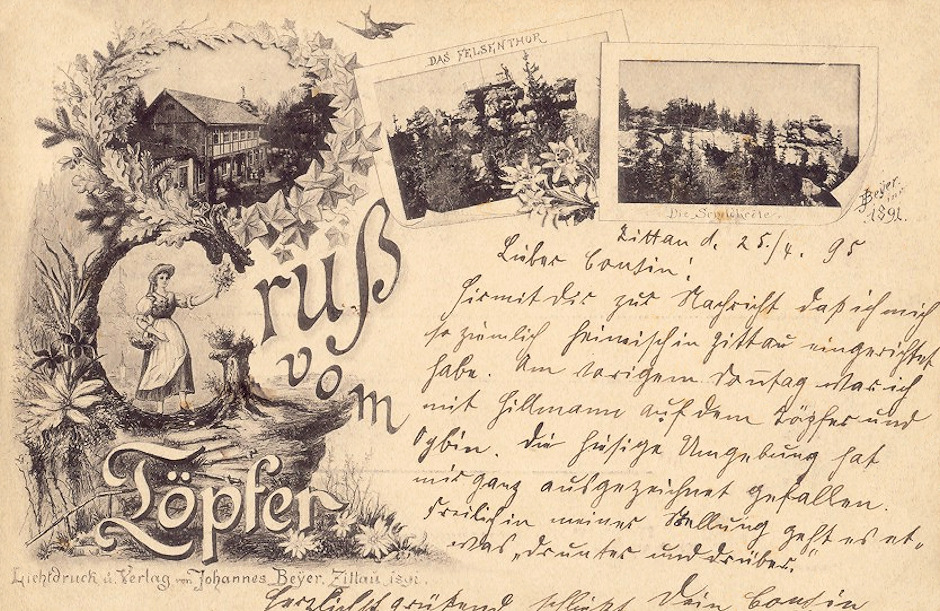 DAS FELSENTHOR
Die Schildkröte.
Beyer.
1891.
Gruß
vom
Töpfer
Lichtdruck u. Verlag von Johannes Beyer, Zittau 1891.
Zittau d. 25./4. 95
Lieber Cousin!
Hiermit Dir zur Nachricht daß ich mich
so ziemlich heimisch in Zittau eingerichtet
habe. Am vorigem Sonntag war ich
mit Hillmann auf dem Töpfer und
Oybin. Die hiesige Umgebung hat
mir ganz ausgezeichnet gefallen.
Freilich in meiner Stellung geht es et-
was „drunter und drüber."
Herzlichst grüßend schließt Dein Cousin